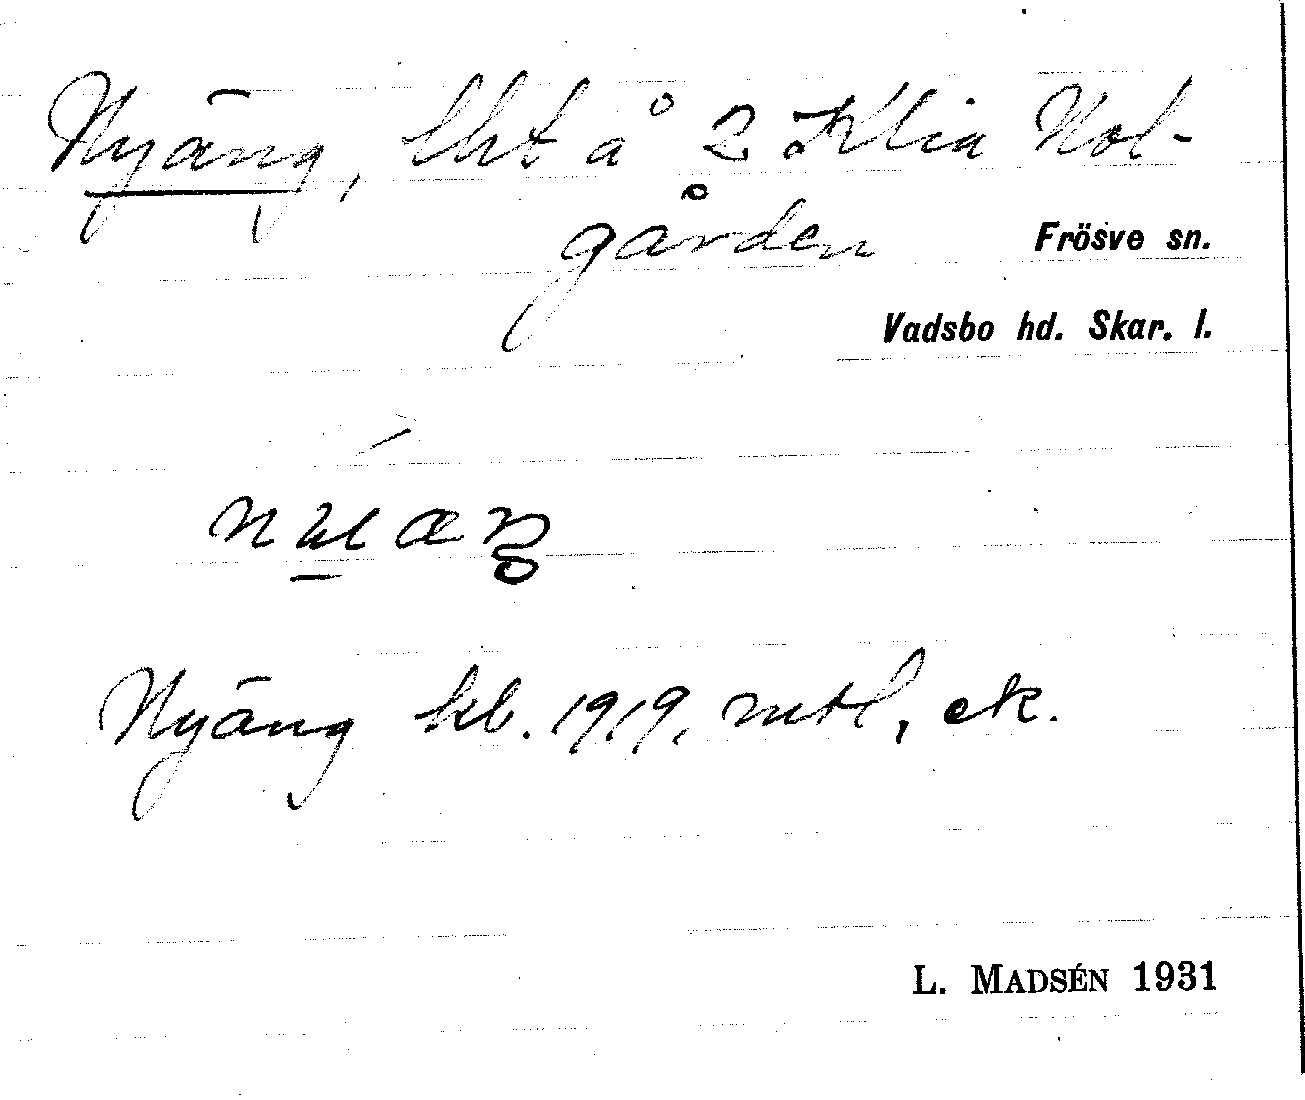 Nyäng, lht å 2 Klia Nol-
gården
Frösve sn.
Vadsbo hd. Skar. l.
Nyäng kb. 1919, mtl, ek.
L. MADSÉN 1931